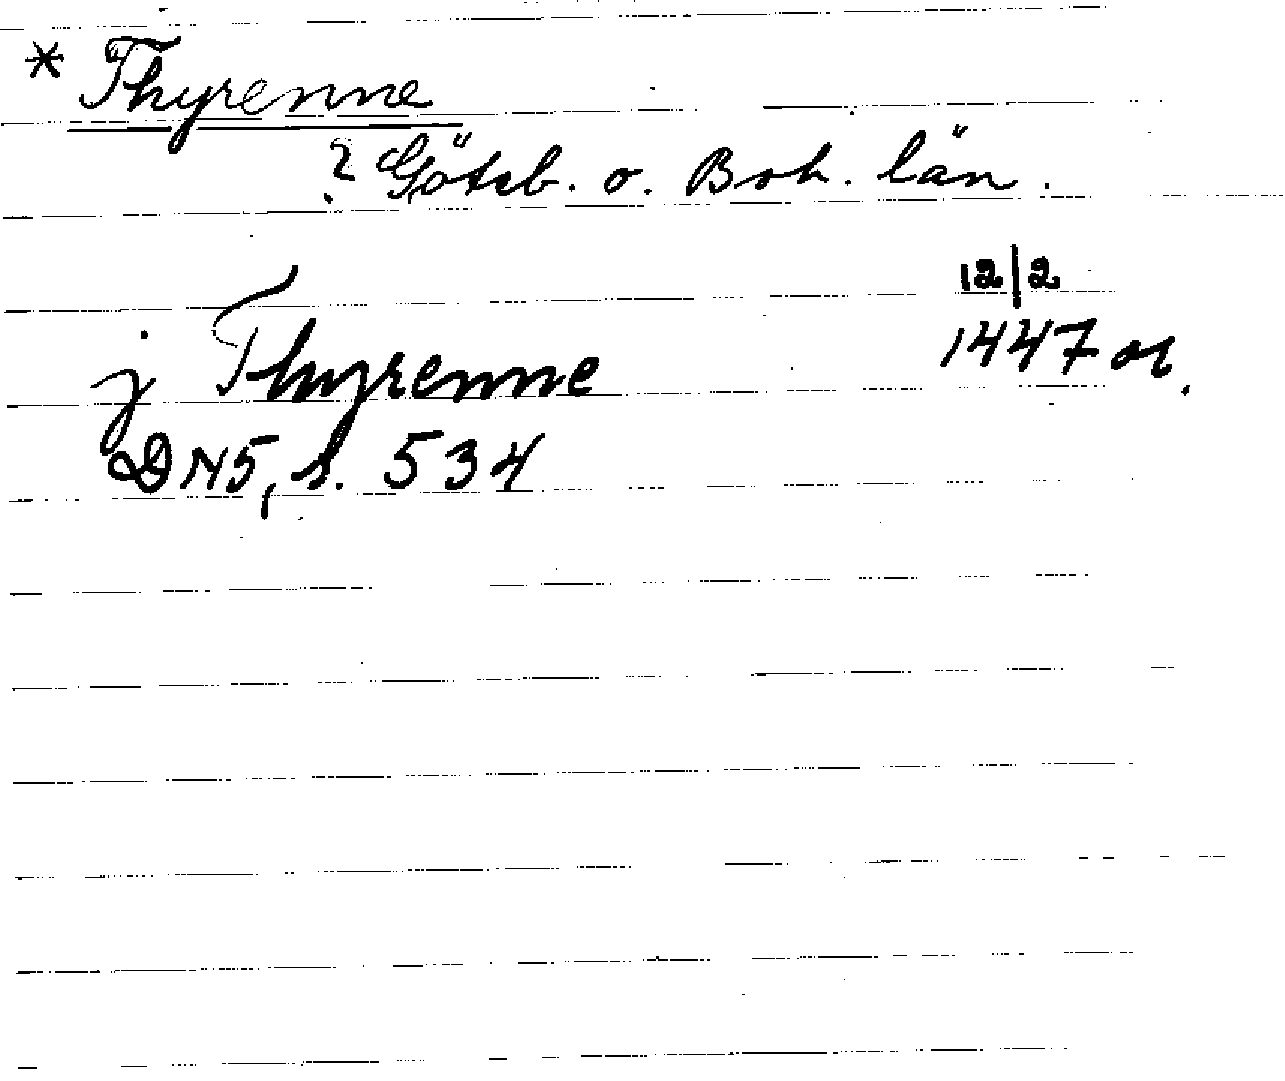 * Thyrenne
? Göteb. o. Boh. län.
12/2
1447 or.
j Thyrenne
DN5, s. 534